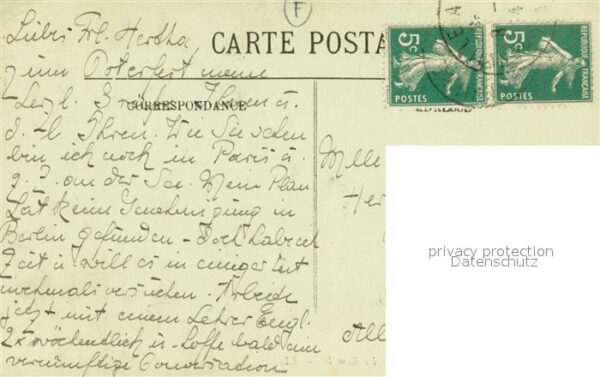 Liebes Frl. Hertha,
CARTE POSTA
F
zum Osterfest meine
herzl. Grüße Ihnen u.
CORRESPONDANCE
d. lb. Ihren. Wie Sie sehen
bin ich noch in Paris u.
z. Z. an der See. Mein Plan
hat keine Genehmigung in
Berlin gefunden – doch habe ich
Zeit u. will es in einiger Zeit
nochmals versuchen. Arbeite
jetzt mit einem Lehrer Engl.
2x wöchentlich u. hoffe bald an
vernünftige Conversation
5c
POSTES
REPUBLIQUE FRANÇAISE
5c
POSTES
REPUBLIQUE FRANÇAISE
Melle
Her
All
privacy protection
Datenschutz